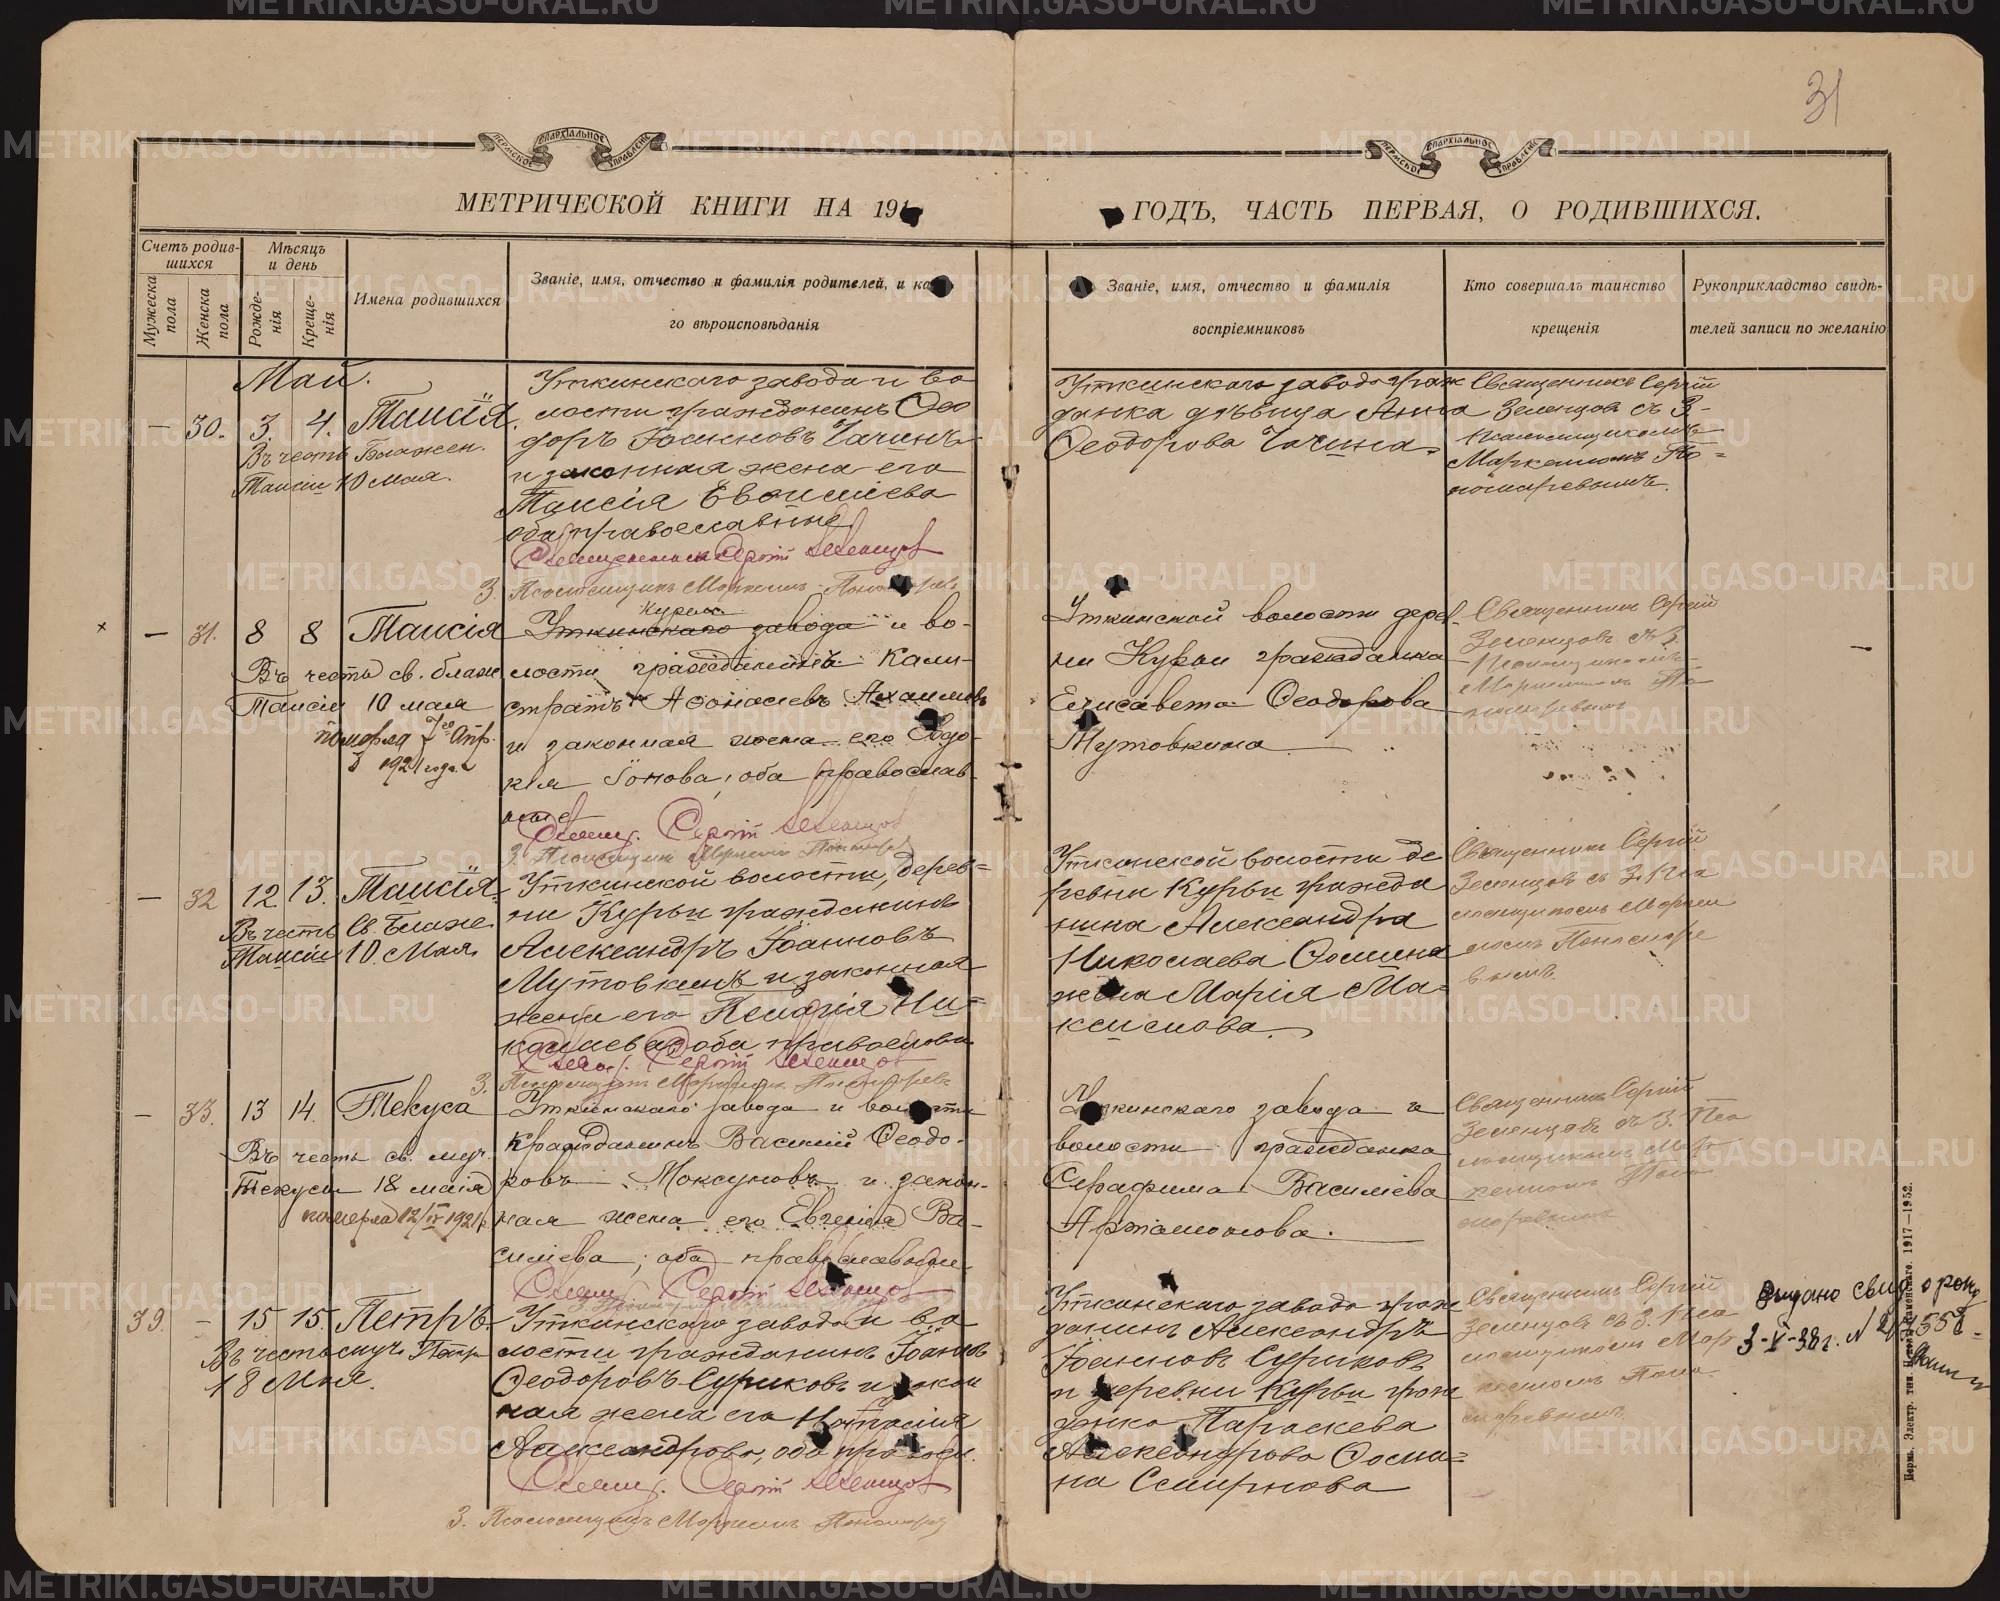 31
ПЕРМСКОЕ ЕПАРХІАЛЬНОЕ УПРАВЛЕНІЕ
ПЕРМСКОЕ ЕПАРХІАЛЬНОЕ УПРАВЛЕНІЕ
МЕТРИЧЕСКОЙ КНИГИ НА 191
ГОДЪ, ЧАСТЬ ПЕРВАЯ, О РОДИВШИХСЯ.
Счетъ родив-
шихся
Мужеска пола
Женска пола
Мѣсяцъ
и день
Рожде-
нія
Креще-
нія
Имена родившихся
Званіе, имя, отчество и фамилія родителей, и ка
го вѣроисповѣданія
Званіе, имя, отчество и фамилія
воспріемниковъ
Кто совершалъ таинство
крещенія
Рукоприкладство свидѣ-
телей записи по желанію
Май.
— 30. 3. 4. Таисія.
Въ честь Блажен.
Таисіи 10 мая.
Уткинскаго завода и во
лости гражданинъ Ѳео
доръ Іоанновъ Чачинъ
и законная жена его
Таисія Евѳиміева
оба православные
Священникъ Сергій Зеленцовъ
З. Псаломщикъ Маркеллъ Пономаревъ
Уткинскаго завода граж
данка дѣвица Анна
Ѳеодорова Чачина.
Священникъ Сергій
Зеленцовъ съ З-
Псаломщикомъ
Маркелломъ По=
номаревымъ.
— 31. 8 8 Таисія
Въ честь св. блаж
Таисіи 10 мая
померла 7го Апр.
1921 года.
Курьи
Уткинскаго завода и во-
лости гражданинъ Кали-
стратъ Аѳонасіевъ
и законная жена его Евдо-
кія Іонова, оба православ-
ные
Свящ. Сергій Зеленцовъ
З. Псаломщик Маркеллъ Пономарев
Уткинской волости дерев-
ни Курьи гражданка
Елисавета Ѳеодорова
Мутовкина
Священникъ Сергій
Зеленцовъ съ З.
Псаломщикомъ
Маркелломъ По
номаревымъ
— 32 12 13. Таисія.
Въ честь Св. Блаже.
Таисіи 10. Мая.
Уткинской волости, дерев=
ни Курьи гражданинъ
Александръ Іоанновъ
Мутовкинъ и законная
жена его Пелагія Ни=
колаева оба православн.
Свящ. Сергій Зеленцовъ
З. Псаломщикъ Маркеллъ Пономаревъ
Уткинской волости де
ревни Курьи гражда
нина Александра
Николаева Ѳомина
жена Марія Ма-
ксимова.
Священникъ Сергій
Зеленцовъ съ З. Пса
ломщикомъ Маркел
ломъ Пономаре
вымъ.
— 33. 13 14. Текуса
Въ честь св. муч.
Текусы 18 маія
померла 12/IV 1921 г.
Уткинскаго завода и волости
гражданинъ Василій Ѳеодо-
ровъ Моксуновъ и закон-
ная жена его Евгенія Ва-
силіева, оба православны.
Свящ. Сергій Зеленцовъ
Уткинскаго завода и
волости гражданка
Серафима Василіева
Артамонова.
Священникъ Сергій
Зеленцовъ съ З. Пса
ломщикомъ Мар
келломъ Поно
маревымъ
39. — 15 15. Петръ.
Въ честь муч. Петра
18 Мая.
Уткинскаго завода и во
лости гражданинъ Іоаннъ
Ѳеодоровъ Суриковъ и закон
ная жена его Наталія
Александрова, оба правосл.
Свящ. Сергій Зеленцовъ
З. Псаломщикъ Маркеллъ Пономарев
Уткинскаго завода граж
данинъ Александръ
Іоанновъ Суриковъ
и деревни Курьи граж
данка Параскева
Александрова Ѳоми=
на Смирнова
Священникъ Сергій
Зеленцовъ съ З. Пса
ломщикомъ Мар
келломъ Поно
маревымъ
Выдано свид. о рожд.
3-V-38 г. N
Пермь. Электр. тип. 1917—1952.
METRIKI.GASO-URAL.RU